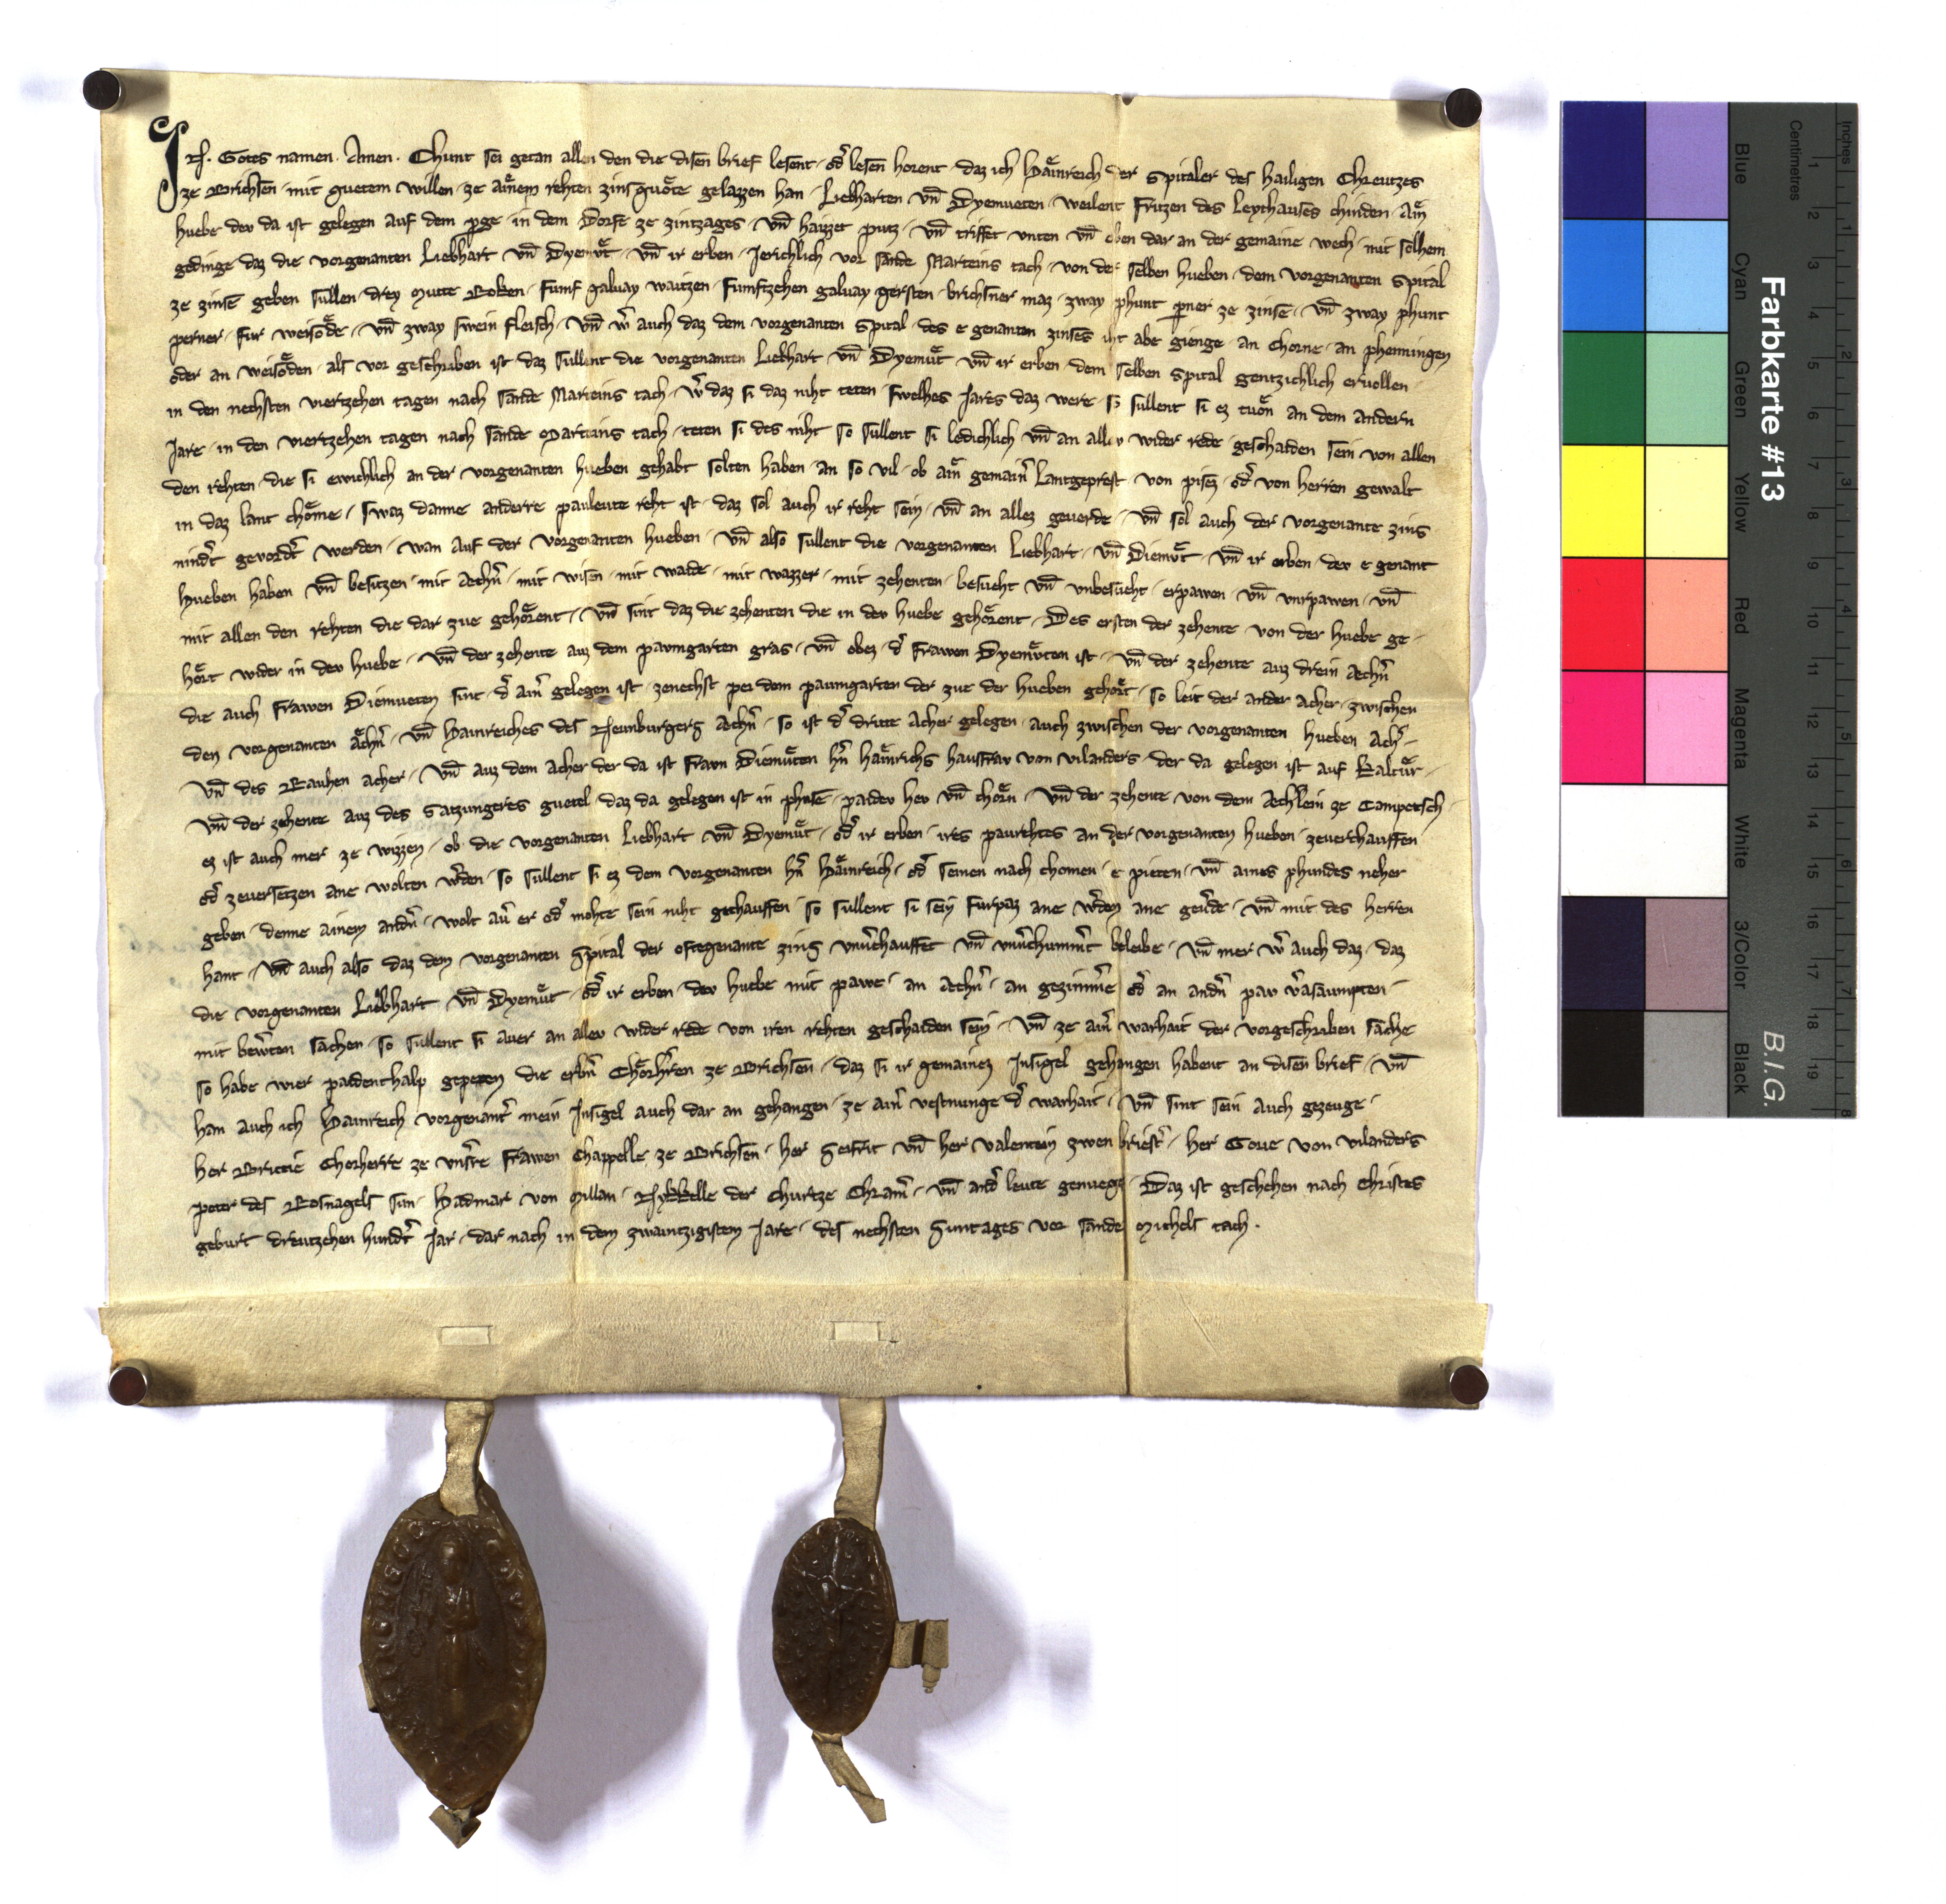 In Gotes namen. Amen. Chunt sei getan allen den die disen brief lesent · od̛ lesen horent · daz ich Hainreich der Spitaler des hailigen Chreutzes
ze Brichsen · mit guetem willen · ze ainem rehten zinsguote gelazzen han · Liebharten vn̄ Dyemueten · weilent Fritzen des Leythauses chinden · Ain
huebe dev da ist gelegen auf dem perge · in dem Dorfe ze zintzages · vn̄ haizzet putz · vn̄ triffet vnten vn̄ oben dar an der gemaine wech · mit solhem
gedinge daz die vorgenanten Liebhart vn̄ Dyemuͤt · vn̄ ir erben · Jerichlich vor sande Marteins tach · von der selben hueben · dem vorgenanten Spital
ze zinse geben sullen · drey mutte Roken · fumf galuay waitzen · fumftzehen galuay gersten · brichsner maz · zway phunt perner ze zinse · vn̄ zway phunt
perner · fur weisode · vn̄ zway swein fleisch · vn̄ w̛ auch daz dem vorgenanten Spital · des e genanten zinses iht abe gienge · an chorne · an phenningen
oder an weisoden · als vor geschriben ist · daz sullent die vorgenanten Liebhart vn̄ Dyemuͤt vn̄ ir erben · dem selben Spital gentzichlich eruollen ·
in den nechsten viertzehen tagen nach sande Marteins tach · w̛ daz si daz niht teten · swelhes Jares daz were · si sullent si ez tuon an dem andern
Jare · in den viertzehen tagen nach sande Marteins tach · teten si des niht so sullent si ledichlich vn̄ an allev wider rede · geschaiden sein von allen
den rehten · die si ewichlich an der vorgenanten hueben gehabt solten haben · an so vil · ob ain gemain̛ Lantgeprest · von pisez · od̛ von herren gewalt
in daz lant chome · swaz danne anderre pauleute reht ist · daz sol auch ir reht sein · vn̄ an allez geuerde · vn̄ sol auch der vorgenante zins
nindt̛ geuordt̛ werden · wan auf der vorgenanten hueben · vn̄ also sullent die vorgenanten Liebhart · vn̄ Diemuͤt · vn̄ ir erben · dev e genant
hueben haben vn̄ besitzen · mit Aechn̛ · mit wisen · mit walde · mit wazzer · mit zehenten · besucht vn̄ vnbesucht · erpawen · vn̄ vnrpawen · vn̄
mit allen den rehten die dar zue gehorent · vn̄ sint daz die zehenten die in dev huebe gehorent · Des ersten der zehente · von der huebe ge-
hort wider in dev huebe · vn̄ der zehente auz dem paumgarten gras · vn̄ obez · d̛ frawen Dyemuͤten ist · vn̄ der zehente auz drein Aechn̛
die auch frawen Diemueten sint · d̛ ain̛ gelegen ist · zenechst per dem paumgarten der zue der hueben gehort · so leit der ander Acher · zwischen
den vorgenanten Aechn̛ · vn̄ Hainreiches des Neunburgers Aechn̛ · so ist d̛ dritte Acher gelegen · auch zwischen der vorgenanten hueben Ach̛-
vn̄ des Rauhen acher · vn̄ auz dem Acher der da ist frawn Diemuͤten hn̄ Hainrichs hausfraw von vilanders · der da gelegen ist auf Kaltur ·
vn̄ der zehente auz des Satzungeres guetel · daz da gelegen ist in phuse · paidev hev vn̄ chorn · vn̄ der zehente von dem Aechlein ze Campetsch ·
ez ist auch mer ze wizzen · ob die vorgenanten Liebhart vn̄ Dyemuͤt · od̛ ir erben · ires paurehtes an der vorgenanten hueben · zeuerchauffen
od̛ zeuersetzen ane wolten w̛den · so sullent si ez dem vorgenanten hn̄ Hainreich · od̛ seinen nach chomen · e pieten · vn̄ aines phundes neher
geben · denne ainem andn̛ · wolt aư er od̛ mohte sein niht gechauffen · so sullent si sein furpaz ane w̛den ane geưde · vn̄ mit des herren
hant · vn̄ auch also daz dem vorgenanten Spital der oftegenante zins vnưchauffet vn̄ vnưchummt̛ beleibe · vn̄ mer w̛ auch daz · daz
die vorgenanten Liebhart vn̄ Dyemuͤt · od̛ ir erben · dev huebe mit pawe · an Aechn̛ · an gezimm̛e od̛ an andn̛ paw v̛saumpten ·
mit bew̛ten sachen · so sullent si auer an allev wider rede von iren rehten geschaiden sein · vn̄ ze ain̛ warhait der vorgeschriben sache
so habe wier paidenthalp gepeten die erbn̛ Chorh̛ren ze Brichsen · daz si ir gemainez Insigel gehangen habent an disen brief · vn̄
han auch ich Hainreich vorgenant̛ mein Insigel auch dar an gehangen · ze ain̛ vestnunge d̛ warhait · vn̄ sint sein auch gezeuge ·
her Brictie Chorherre ze vns̛re frawen Chappelle ze Brichsen · her Seifrit vn̄ her valentein zwen briest̛ · her Goue von vilanders
peter des Rosnagels sun · Hadmar von Millan · Nykkelle der churtze Chram̛ · vn̄ and̛ leute genuege · Daz ist geschehen nach Christes
geburt dreutzehen hundt̛ Jar · dar nach in dem zwaintzigistem Jare · des nechsten Suntages vor sande Michels tach ·
Farbkarte #13
B.I.G.
Blue
Cyan
Green
Yellow
Red
Magenta
White
3/Color
Black
Inches
Centimetres
1 2 3 4 5 6 7 8
1 2 3 4 5 6 7 8 9 10 11 12 13 14 15 16 17 18 19